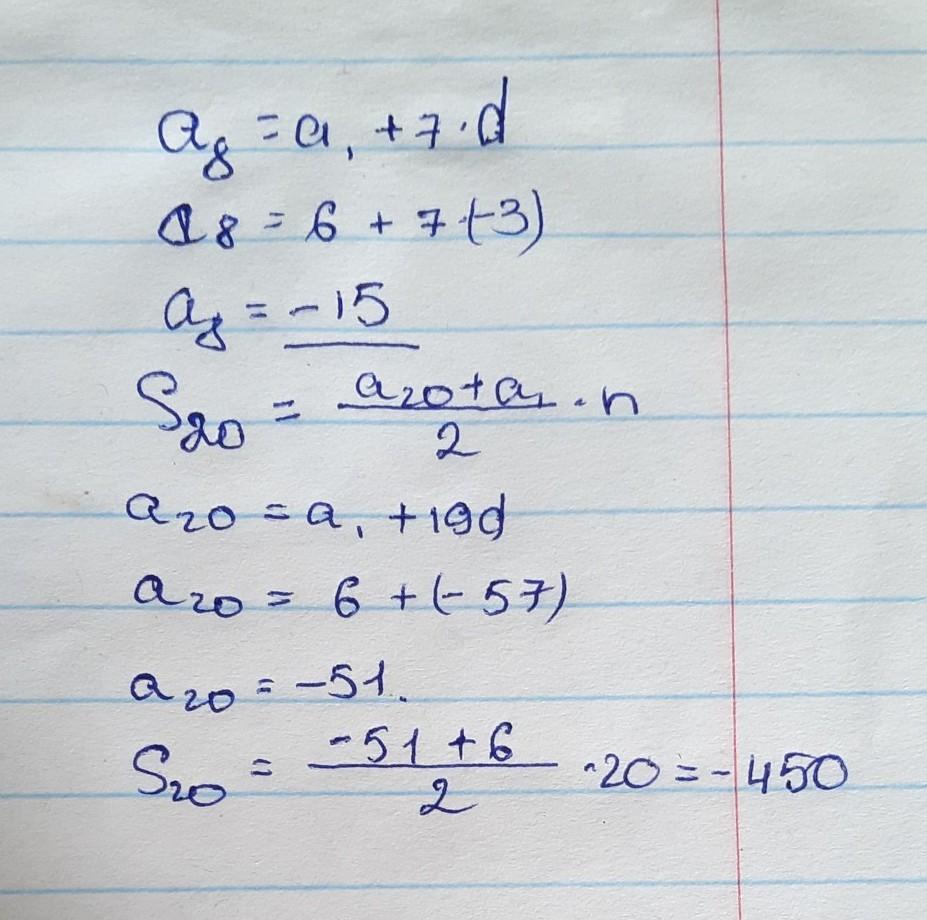 a₈ = a₁ + 7 · d
a₈ = 6 + 7 · (-3)
a₈ = -15
S₂₀ = (a₂₀ + a₁)/2 · n
a₂₀ = a₁ + 19d
a₂₀ = 6 + (-57)
a₂₀ = -51.
S₂₀ = (-51 + 6)/2 · 20 = -450